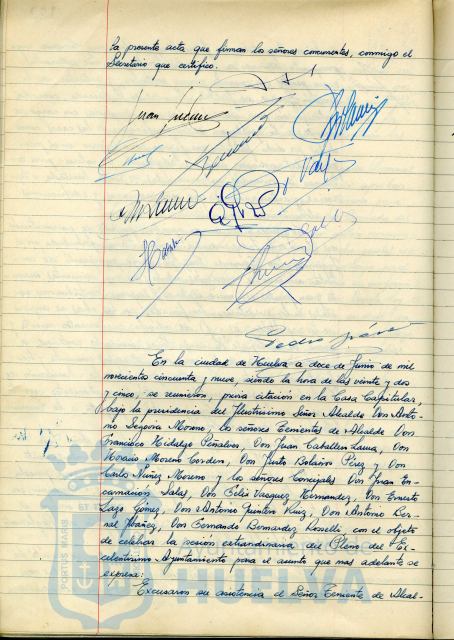 la presente acta que firman los señores concurrentes, conmigo el
Secretario que certifico.
Juan
Pedro
En la ciudad de Huelva a doce de Junio de mil
novecientos cincuenta y nueve, siendo la hora de las veinte y dos
y cinco, se reunieron, previa citación en la Casa Capitular,
bajo la presidencia del Ilustrísimo Señor Alcalde Don Anto-
nio Segovia Moreno, los señores Tenientes de Alcalde Don
Francisco Hidalgo Peñalosa, Don Juan Caballero Laura, Don
Horacio Moreno Cordero, Don Justo Bolaños Pérez y Don
Carlos Núñez Moreno y los señores Concejales Don Juan En-
carnación Salas, Don Felix Vazquez Hernandez, Don Ernesto
Lazo Gómez, Don Antonio Quintero Ruiz, Don Antonio Ber-
nal Ibáñez, Don Fernando Bernardez Roselli, con el objeto
de celebrar la sesión extraordinaria, del Pleno del Ex-
celentísimo Ayuntamiento para el asunto que mas adelante se
expresa:
Excusaron su asistencia el Señor Teniente de Alcal-
PORTUS MARIS
HUELVA